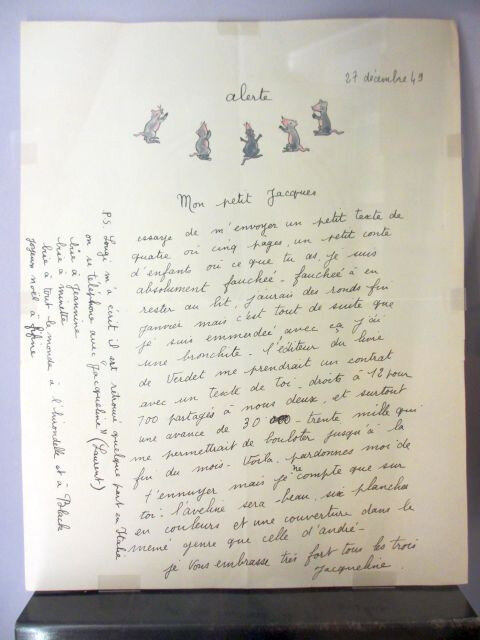 27 décembre 49
alerte
Mon petit Jacques
essaye de m'envoyer un petit texte de
quatre où cinq pages, un petit conte
d'enfants où ce que tu as, je suis
absolument fauchée - fauchée à en
rester au lit, j'aurais des ronds fin
janvier mais c'est tout de suite que
je suis emmerdée avec ça j'ai
une bronchite - l'éditeur du livre
de Verdet me prendrait un contrat
avec un texte de toi - droits à 12 pour
100 partagés à nous deux, et surtout
une avance de 30 - trente mille qui
me permettrait de bouloter jusqu'à la
fin du mois - Voilà, pardonnes moi de
t'ennuyer mais je ne compte que sur
toi : l'aveline sera beau, six planches
en couleurs et une couverture dans le
même genre que celle d'andré -
je vous embrasse très fort tous les trois
Jacqueline.
PS Longi m'a écrit il est retrouvé quelque part en Italie
on se téléphone avec Jacqueline" (Laurent)
bise à Jeannine
bise à minette
bise à tout le monde à l'hirondelle et à Black
joyeux noël à